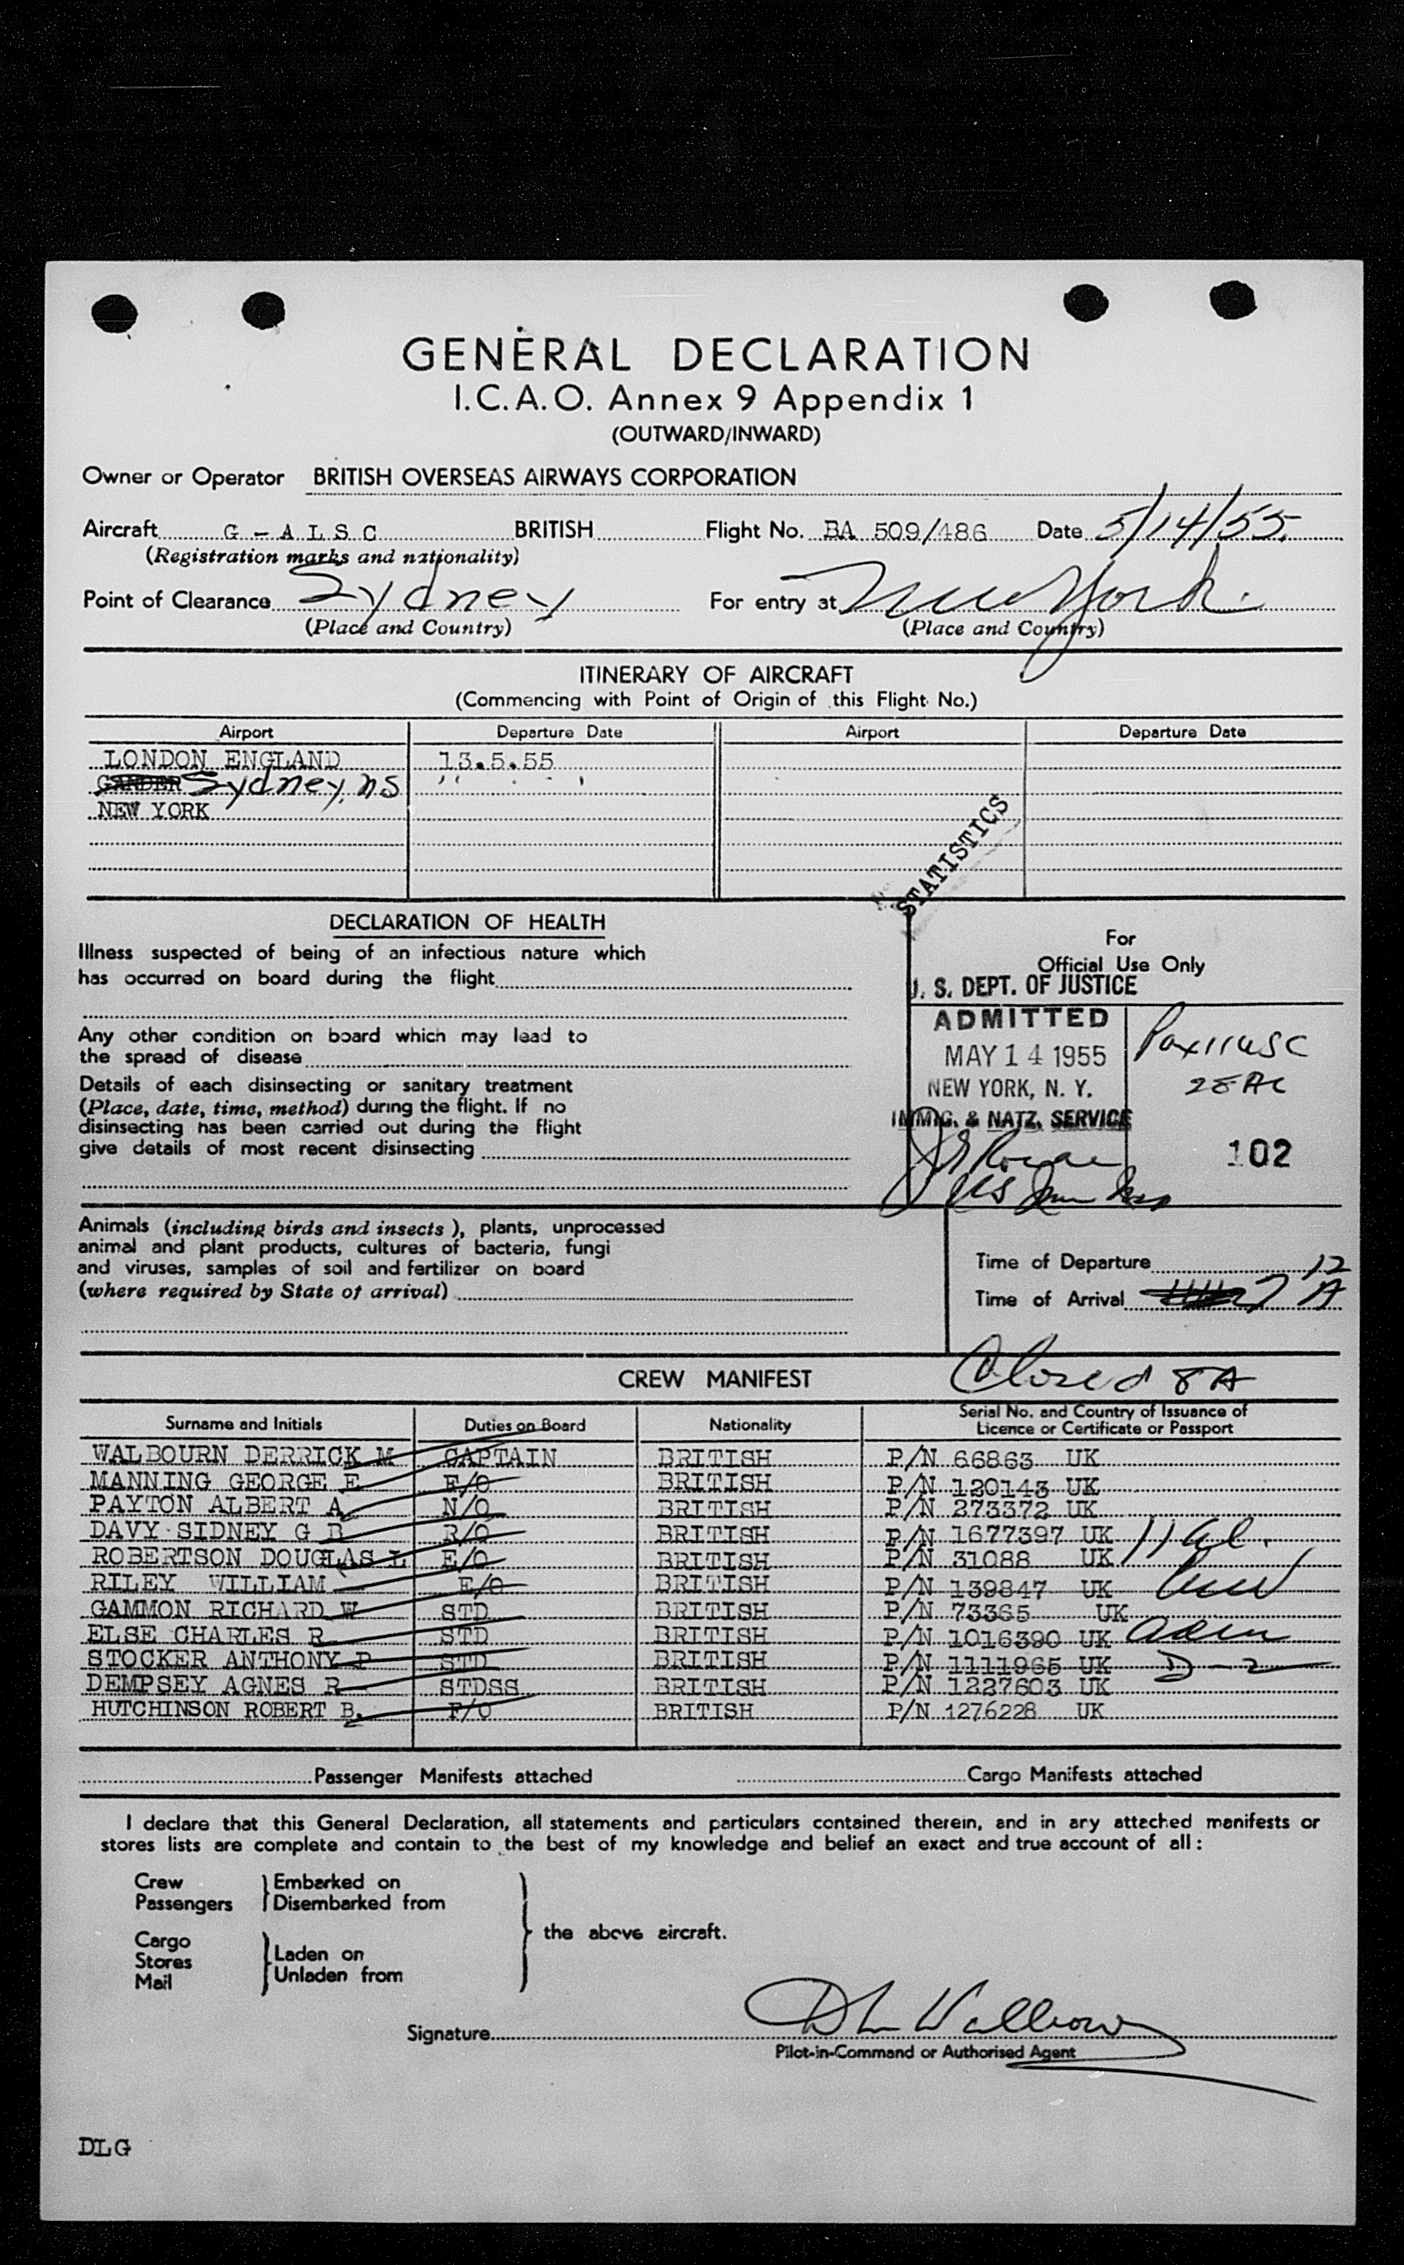 GENERAL DECLARATION
I.C.A.O. Annex 9 Appendix 1
(OUTWARD/INWARD)
Owner or Operator BRITISH OVERSEAS AIRWAYS CORPORATION
Aircraft G-ALSC BRITISH Flight No. BA 509/486 Date 5/14/55
(Registration marks and nationality)
Point of Clearance Sydney For entry at New York
(Place and Country) (Place and Country)
ITINERARY OF AIRCRAFT
(Commencing with Point of Origin of this Flight No.)
Airport Departure Date Airport Departure Date
LONDON ENGLAND 13.5.55
GANDER Sydney, NS " "
NEW YORK
STATISTICS
DECLARATION OF HEALTH
Illness suspected of being of an infectious nature which
has occurred on board during the flight
For
Official Use Only
U. S. DEPT. OF JUSTICE
ADMITTED
MAY 14 1955
NEW YORK, N. Y.
IMMIG. & NATZ. SERVICE
102
Any other condition on board which may lead to
the spread of disease
Details of each disinsecting or sanitary treatment
(Place, date, time, method) during the flight. If no
disinsecting has been carried out during the flight
give details of most recent disinsecting
Animals (including birds and insects), plants, unprocessed
animal and plant products, cultures of bacteria, fungi
and viruses, samples of soil and fertilizer on board
(where required by State of arrival)
Time of Departure 12
Time of Arrival 7 A
Closed 8A
CREW MANIFEST
Surname and Initials Duties on Board Nationality Serial No. and Country of Issuance of Licence or Certificate or Passport
WALBOURN DERRICK M CAPTAIN BRITISH P/N 66863 UK
MANNING GEORGE E F/O BRITISH P/N 120143 UK
PAYTON ALBERT A N/O BRITISH P/N 273372 UK
DAVY SIDNEY G B R/O BRITISH P/N 1677397 UK
ROBERTSON DOUGLAS L E/O BRITISH P/N 31088 UK
RILEY WILLIAM E/O BRITISH P/N 139847 UK
GAMMON RICHARD W STD BRITISH P/N 73365 UK
ELSE CHARLES R STD BRITISH P/N 1016390 UK
STOCKER ANTHONY P STD BRITISH P/N 1111965 UK D-2
DEMPSEY AGNES R STDSS BRITISH P/N 1227603 UK
HUTCHINSON ROBERT B. F/O BRITISH P/N 1276228 UK
Passenger Manifests attached Cargo Manifests attached
I declare that this General Declaration, all statements and particulars contained therein, and in any attached manifests or
stores lists are complete and contain to the best of my knowledge and belief an exact and true account of all:
Crew
Passengers
Embarked on
Disembarked from
Cargo
Stores
Mail
Laden on
Unladen from
the above aircraft.
Signature
Pilot-in-Command or Authorised Agent
DLG